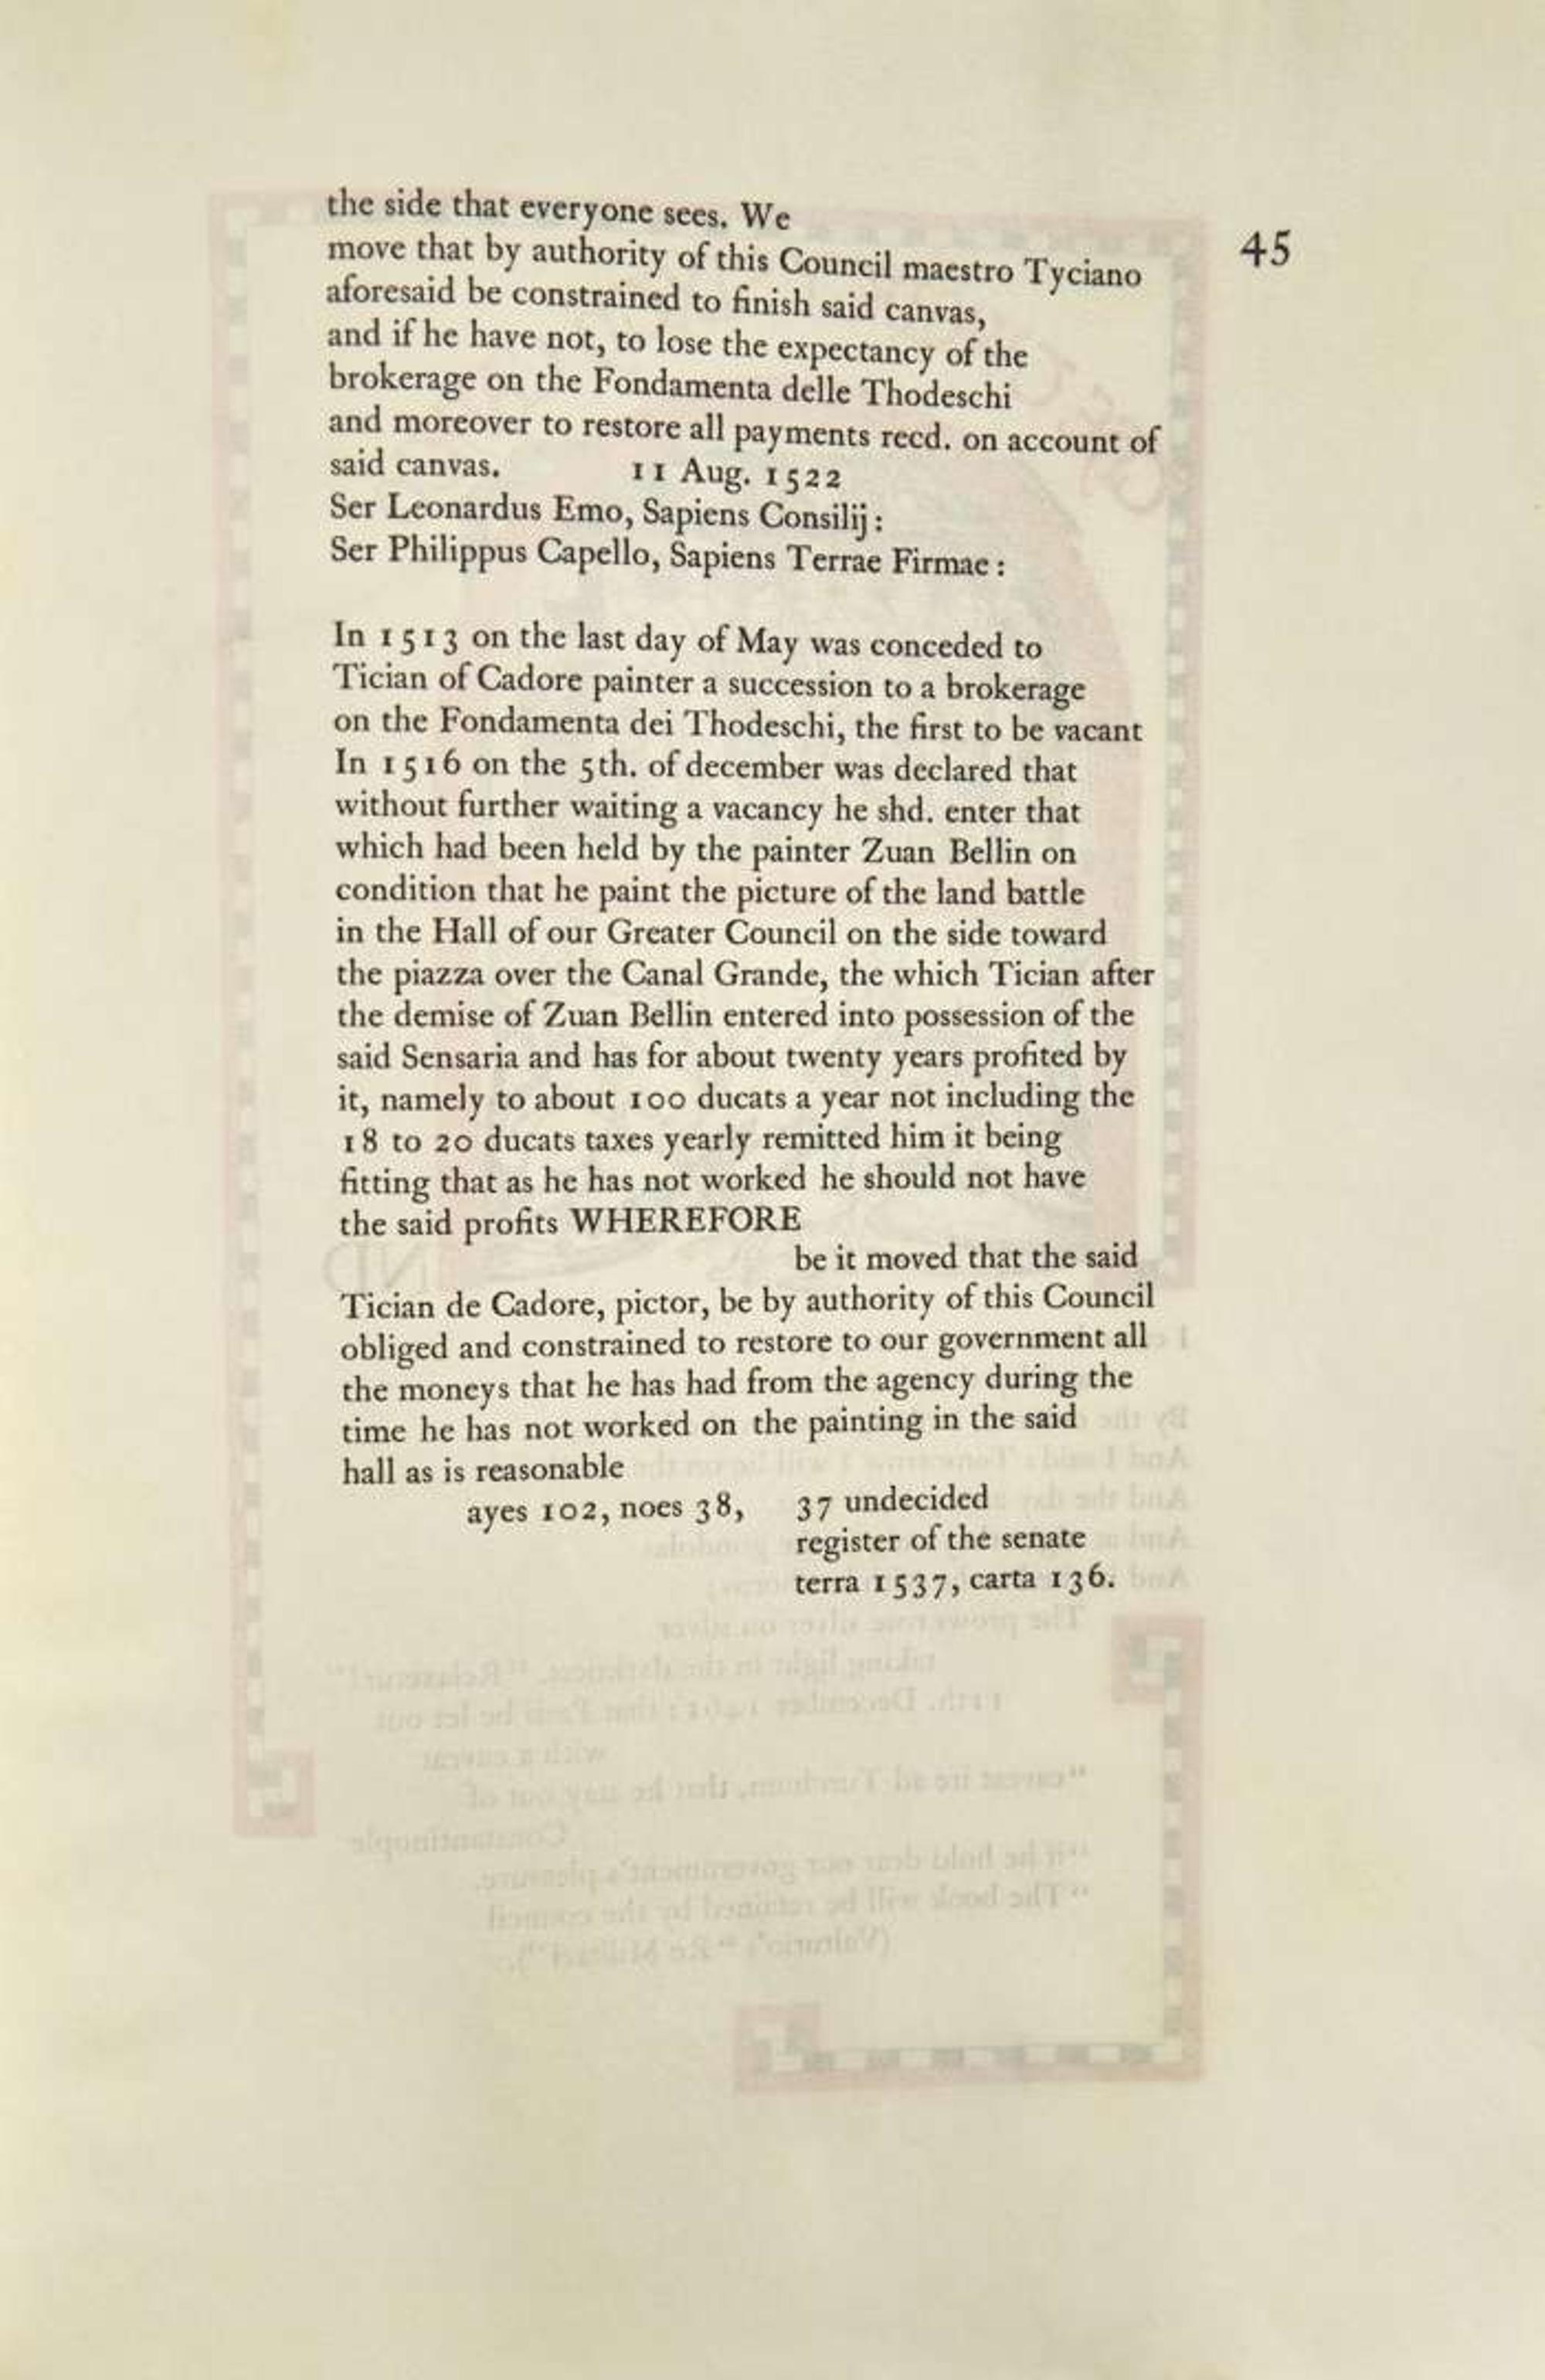 45
the side that everyone sees. We
move that by authority of this Council maestro Tyciano
aforesaid be constrained to finish said canvas,
and if he have not, to lose the expectancy of the
brokerage on the Fondamenta delle Thodeschi
and moreover to restore all payments recd. on account of
said canvas. 11 Aug. 1522
Ser Leonardus Emo, Sapiens Consilij :
Ser Philippus Capello, Sapiens Terrae Firmae :
In 1513 on the last day of May was conceded to
Tician of Cadore painter a succession to a brokerage
on the Fondamenta dei Thodeschi, the first to be vacant
In 1516 on the 5th. of december was declared that
without further waiting a vacancy he shd. enter that
which had been held by the painter Zuan Bellin on
condition that he paint the picture of the land battle
in the Hall of our Greater Council on the side toward
the piazza over the Canal Grande, the which Tician after
the demise of Zuan Bellin entered into possession of the
said Sensaria and has for about twenty years profited by
it, namely to about 100 ducats a year not including the
18 to 20 ducats taxes yearly remitted him it being
fitting that as he has not worked he should not have
the said profits WHEREFORE
be it moved that the said
Tician de Cadore, pictor, be by authority of this Council
obliged and constrained to restore to our government all
the moneys that he has had from the agency during the
time he has not worked on the painting in the said
hall as is reasonable
ayes 102, noes 38, 37 undecided
register of the senate
terra 1537, carta 136.